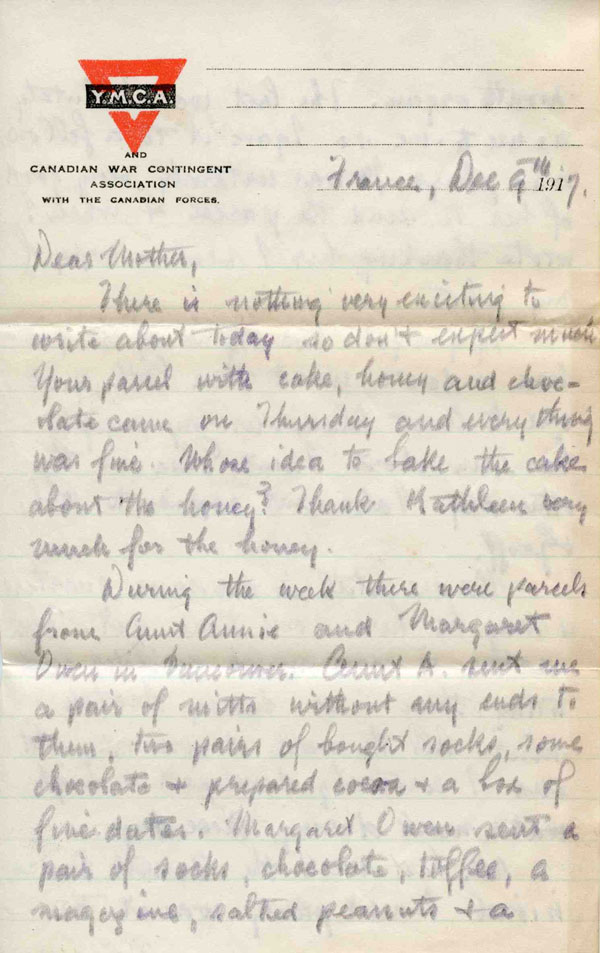 Y.M.C.A.
AND
CANADIAN WAR CONTINGENT
ASSOCIATION
WITH THE CANADIAN FORCES.
France, Dec 9th 1917.
Dear Mother,
There is nothing very exciting to
write about today so don't expect much.
Your parcel with cake, honey and choc-
olate came on Thursday and every thing
was fine. Whose idea to bake the cake
about the honey? Thank Kathleen very
much for the honey.
During the week there were parcels
from Aunt Annie and Margaret
Owen in Vancouver. Aunt A. sent me
a pair of mitts without any ends to
them, two pairs of bought socks, some
chocolate & prepared cocoa & a box of
fine dates. Margaret Owen sent a
pair of socks, chocolate, toffee, a
magazine, salted peanuts & a